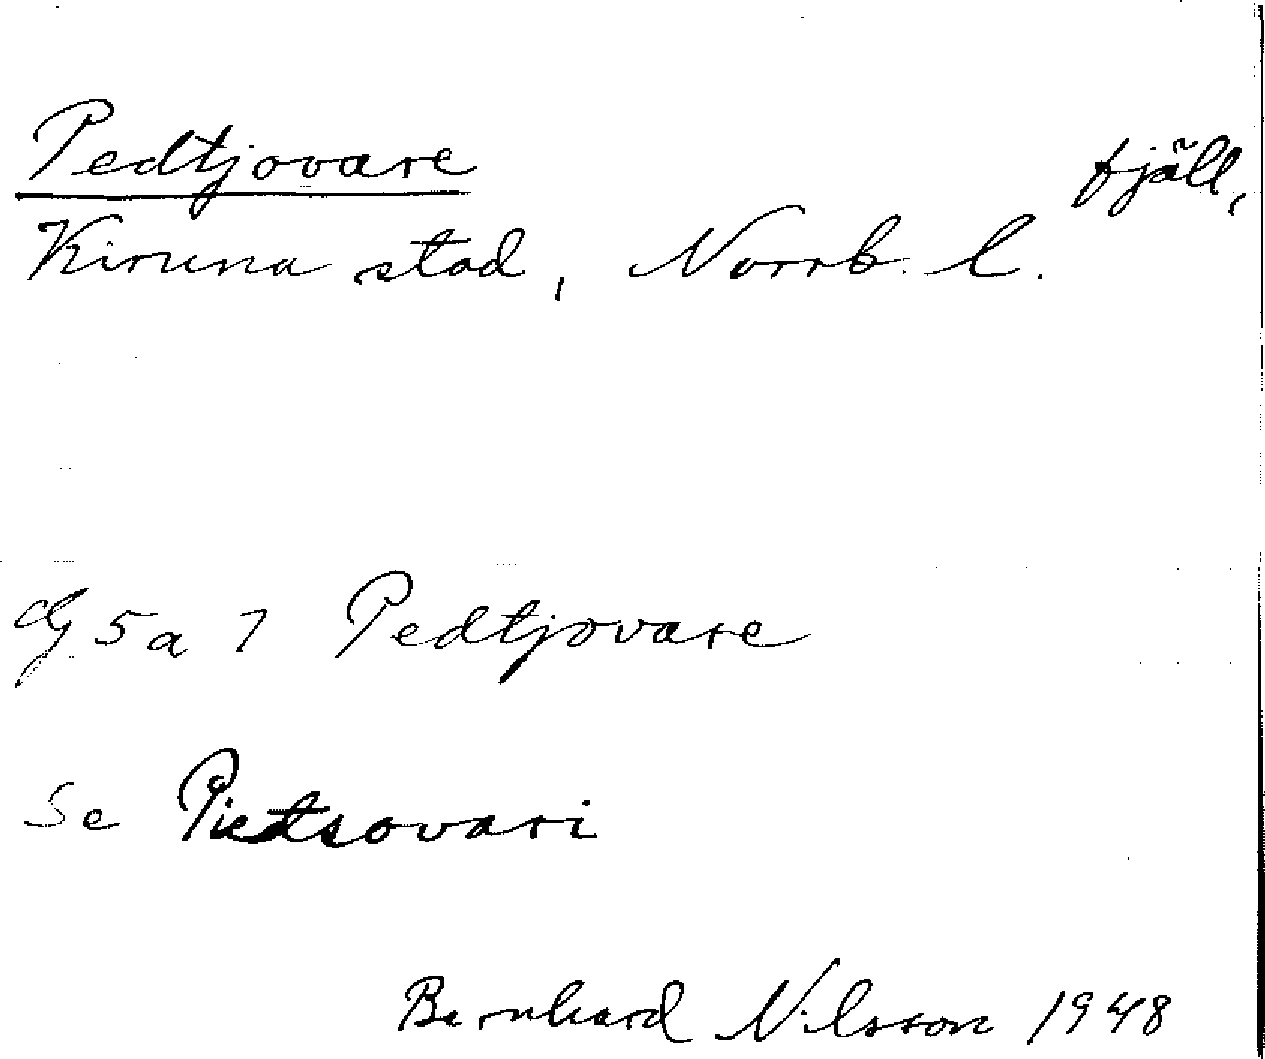 Pedtjovare
fjäll,
Kiruna stad, Norrb. l.
Gj 5 a 7 Pedtjovare
Se Pietsovari
Bernhard Nilsson 1948